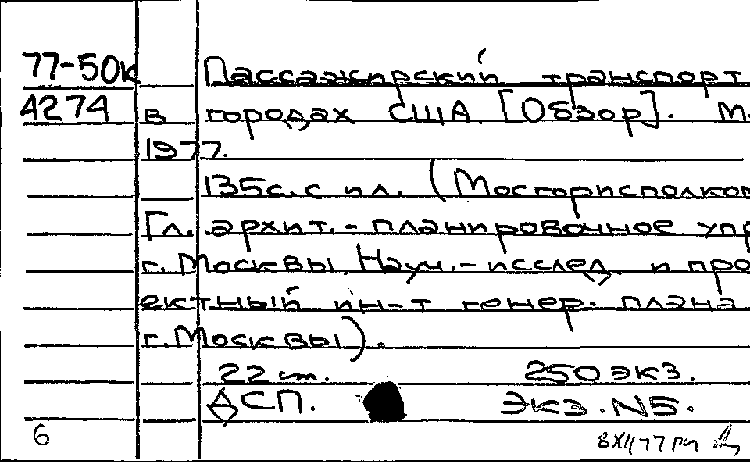 77-50к Пассажирский транспорт
4274 в городах США [Обзор]. М.
1977.
135с. с ил. (Мосгорисполком
Гл. архит.-планировочное упр
г. Москвы. Науч.-исслед. и про
ектный ин-т генер. плана
г. Москвы).
22 см. 250 экз.
ДСП. Экз. N5.
6